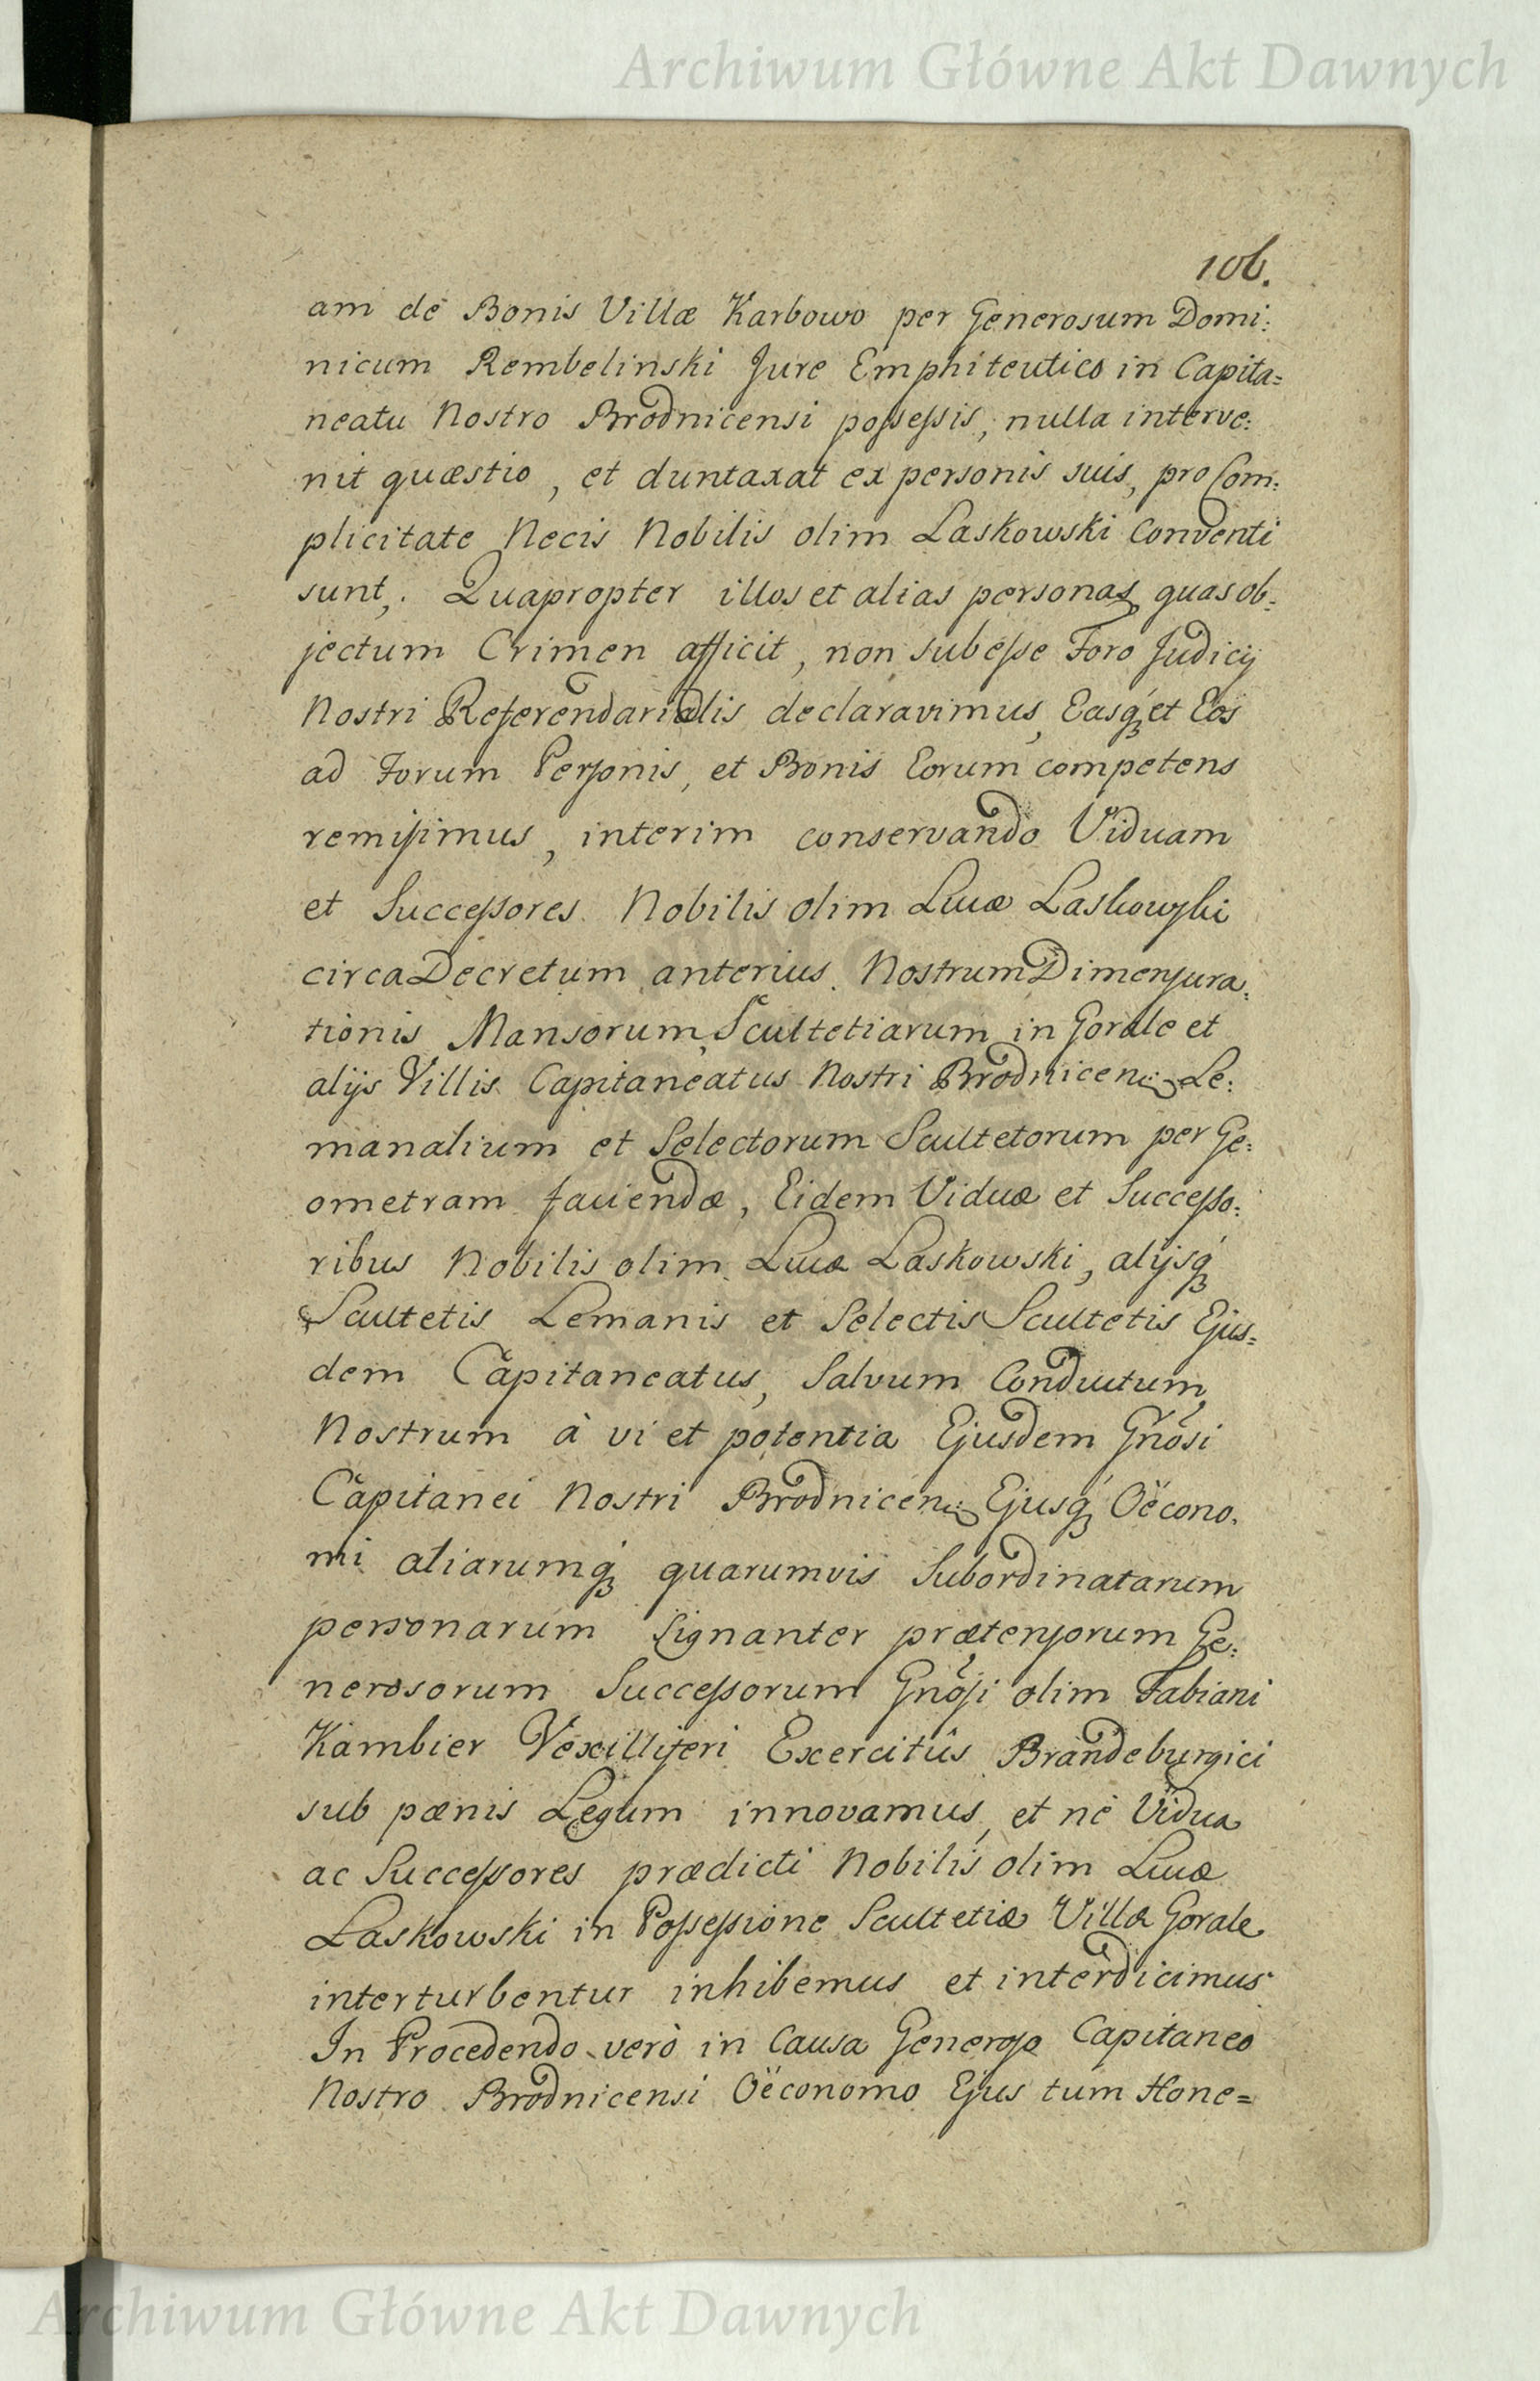 Archiwum Główne Akt Dawnych
106.
am de Bonis Villæ Karbowo per Generosum Domi:
nicum Rembelinski Jure Emphiteutico in Capita=
neatu Nostro Brodnicensi possessis, nulla interve:
nit quæstio, et duntaxat ex personis suis, pro Com:
plicitate Necis Nobilis olim Laskowski conventi
sunt,. Quapropter illos et alias personas quas ob:
jectum Crimen afficit, non subesse Foro Judicij
Nostri Referendarialis declaravimus, Easq́ꝫ et Eos
ad Forum Personis, et Bonis Eorum competens
remisimus, interim conservando Viduam
et Successores Nobilis olim Lucæ Laskowski
circa Decretum anterius Nostrum Dimensura:
tionis Mansorum, Scultetiarum in Gorale et
alijs Villis Capitaneatus Nostri Brodnicen: Le:
manalium et Selectorum Scultetorum per Ge:
ometram faciendæ, Eidem Viduæ et Successo:
ribus Nobilis olim Lucæ Laskowski, alijsq́ꝫ
Scultetis Lemanis et Selectis Scultetis Ejus=
dem Capitaneatus, Salvum Conductum
Nostrum à vi et potentia Ejusdem Gnõsi
Capitanei Nostri Brodnicen: Ejusq́ꝫ Oëcono.
mi aliarumq́ꝫ quarumvis Subordinatarum
personarum signanter prætensorum Ge:
nerosorum Successorum Gnõsi olim Fabiani
Kambier Vexilliferi Exercitûs Brandeburgici
sub pænis Legum innovamus, et nè Vidua
ac Successores prædicti Nobilis olim Lucæ
Laskowski in Possessione Scultetiæ Villæ Gorale
interturbentur inhibemus et interdicimus
In Procedendo verò in Causa Generoso Capitaneo
Nostro Brodnicensi Oëconomo Ejus tum Hone=
Archiwum Główne Akt Dawnych